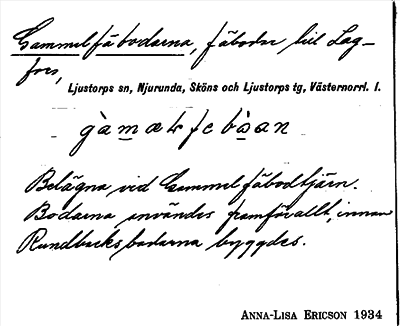 Gammelfäbodarna, fäbodar till Lag-
fors,
Ljustorps sn, Njurunda, Sköns och Ljustorps tg, Västernorrl. l.
Belägna vid Gammelfäbodtjärn.
Bodarna användes framförallt, innan
Rundbacksbodarna byggdes.
ANNA-LISA ERICSON 1934